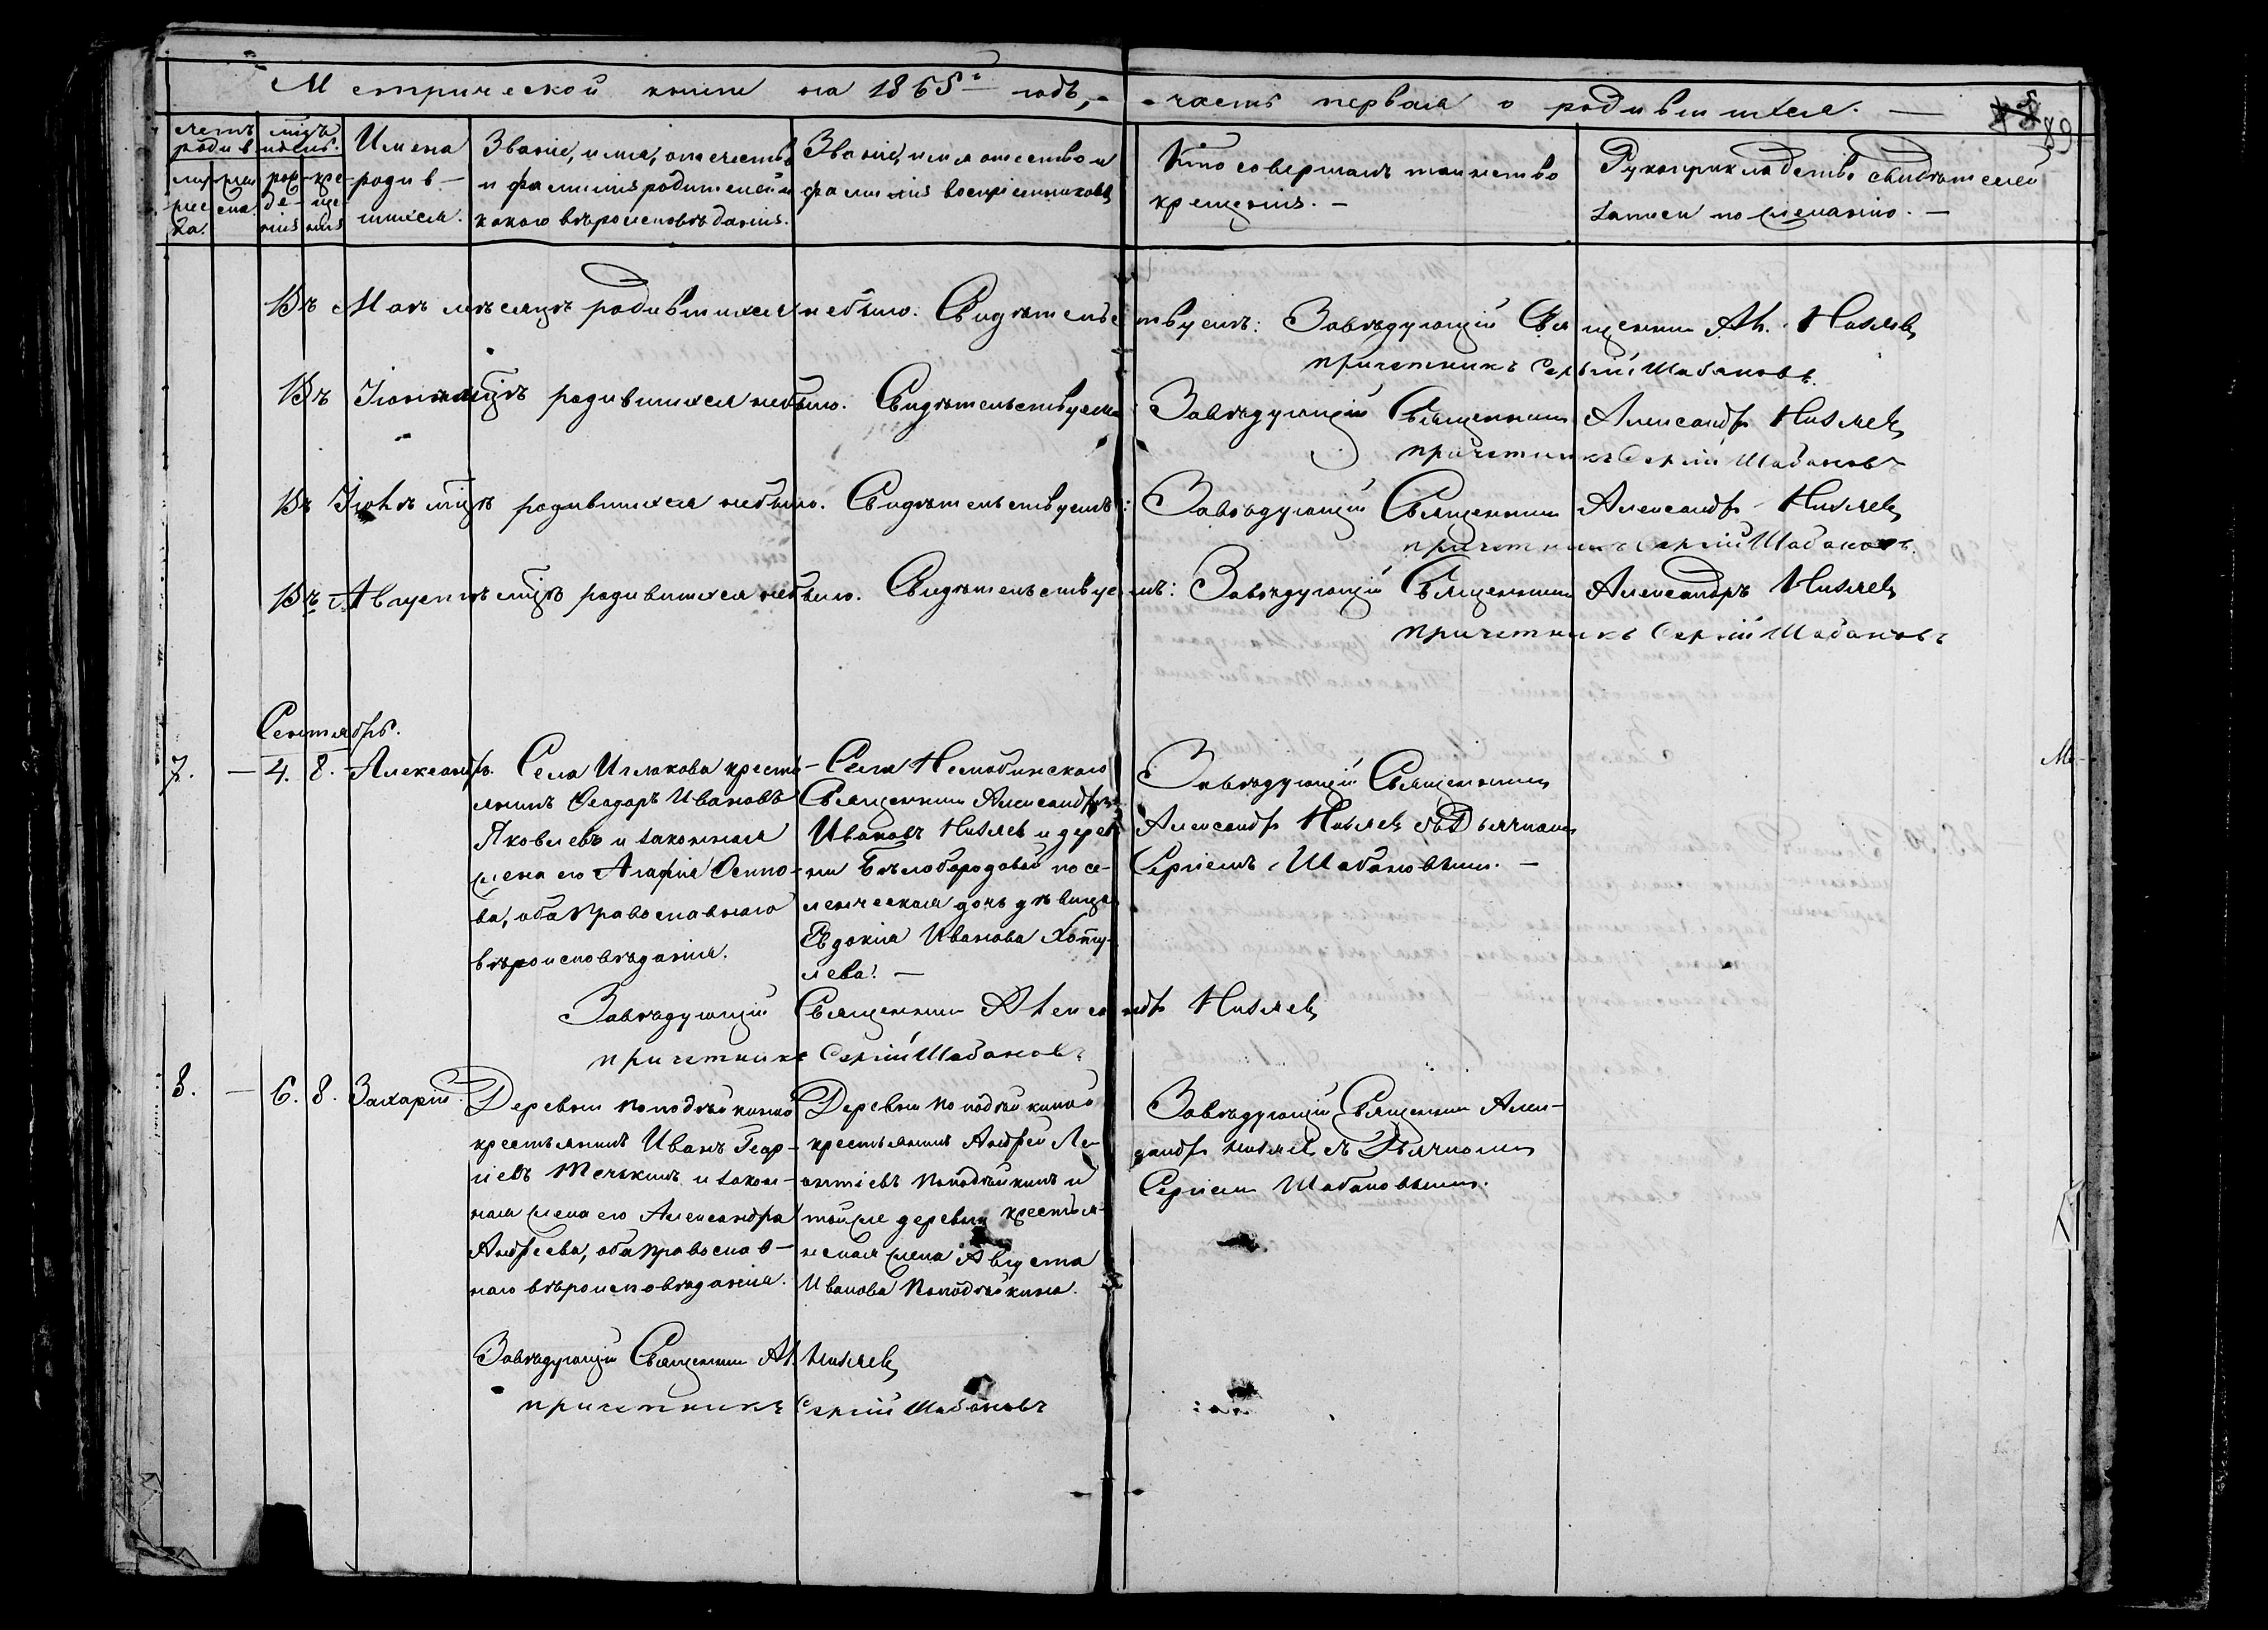 Метрической книги на 1865й годъ, - часть первая о родившихся. —
89
счетъ родив.
мужеска.
женска.
мѣсяцъ и день.
рождения
крещения
Имена родив-
шихся.
Званіе, имя, отчество
и фамилія родителей и
какого вѣроисповѣданія.
Званіе, имя отчество и
фамилія воспріемниковъ
Кто совершалъ таинство
крещенія. —
Рукоприкладство свидѣтелей
записи по желанію. —
Въ Маѣ мѣсяцѣ родившихся небыло. Свидѣтельствуемъ: Завѣдующій Священникъ Ал.
причетникъ Сергій Шабановъ.
Въ Іюнѣ мцѣ родившихся небыло. Свидѣтельствуемъ: Завѣдующій Священникъ Александръ
причетникъ Сергій Шабановъ
Въ Іюлѣ мцѣ родившихся небыло. Свидѣтельствуемъ: Завѣдующій Священникъ Александръ
причетникъ Сергій Шабановъ.
Въ Августѣ мцѣ родившихся небыло. Свидѣтельствуемъ: Завѣдующій Священникъ Александръ
причетникъ Сергій Шабановъ
Сентябрь.
7. — 4. 8. Александръ.
Села Ислакова кресть-
янинъ Ѳеодоръ Ивановъ
Яковлевъ и законная
жена его Агафія Осипо-
ва, оба православнаго
вѣроисповѣданія.
Села
Священникъ Александръ
Ивановъ и дерев-
ни Бѣлобородовой посе-
ленческая дочь дѣвица
Евдокія Иванова
лева. —
Завѣдующій Священникъ
Александръ съ Дьячкомъ
Сергіемъ Шабановымъ. —
Завѣдующій Священникъ Александръ
причетникъ Сергій Шабановъ
8. — 6. 8. Захарій.
Деревни
крестьянинъ Иванъ Геор-
гіевъ и закон-
ная жена его Александра
Андреева, оба православ-
наго вѣроисповѣданія.
Деревни
крестьянинъ Андрей Ле-
онтіевъ и
тойже деревни крестьян-
ская жена Августа
Иванова
Завѣдующій Священникъ Алек-
сандръ съ Дьячкомъ
Сергіемъ Шабановымъ.
Завѣдующій Священникъ Ал.
причетникъ Сергій Шабановъ